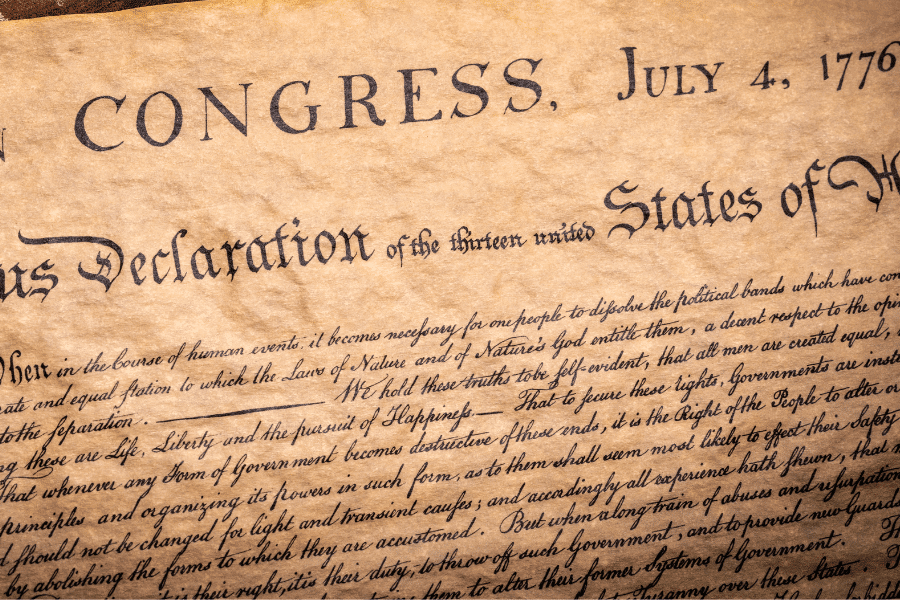 N CONGRESS, JULY 4, 1776
us Declaration of the thirteen united States of
When in the Course of human events, it becomes necessary for one people to dissolve the political bands which have con
rate and equal station to which the Laws of Nature and of Nature's God entitle them, a decent respect to the opin
to the separation. We hold these truths to be self-evident, that all men are created equal,
ng these are Life, Liberty and the pursuit of Happiness.— That to secure these rights, Governments are inst
That whenever any Form of Government becomes destructive of these ends, it is the Right of the People to alter or
principles and organizing its powers in such form, as to them shall seem most likely to effect their Safety
d should not be changed for light and transient causes; and accordingly all experience hath shewn, that
by abolishing the forms to which they are accustomed. But when a long train of abuses and usurpation
it is their right, it is their duty, to throw off such Government, and to provide new Guards
them to alter their former Systems of Government.
Tyranny over these States.